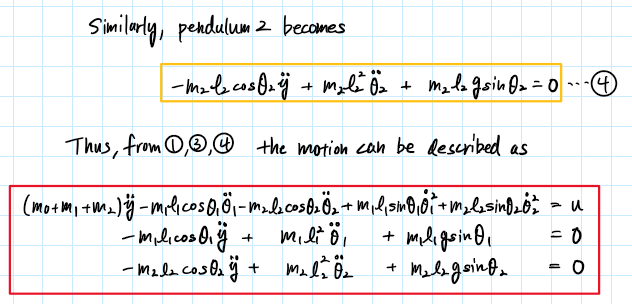 Similarly, pendulum 2 becomes
-m₂l₂cosθ₂ÿ + m₂l₂²θ̈₂ + m₂l₂gsinθ₂ = 0 ---④
Thus, from ①,③,④ the motion can be described as
(m₀+m₁+m₂)ÿ - m₁l₁cosθ₁θ̈₁ - m₂l₂cosθ₂θ̈₂ + m₁l₁sinθ₁θ̇₁² + m₂l₂sinθ₂θ̇₂² = u
-m₁l₁cosθ₁ÿ + m₁l₁²θ̈₁ + m₁l₁gsinθ₁ = 0
-m₂l₂cosθ₂ÿ + m₂l₂²θ̈₂ + m₂l₂gsinθ₂ = 0